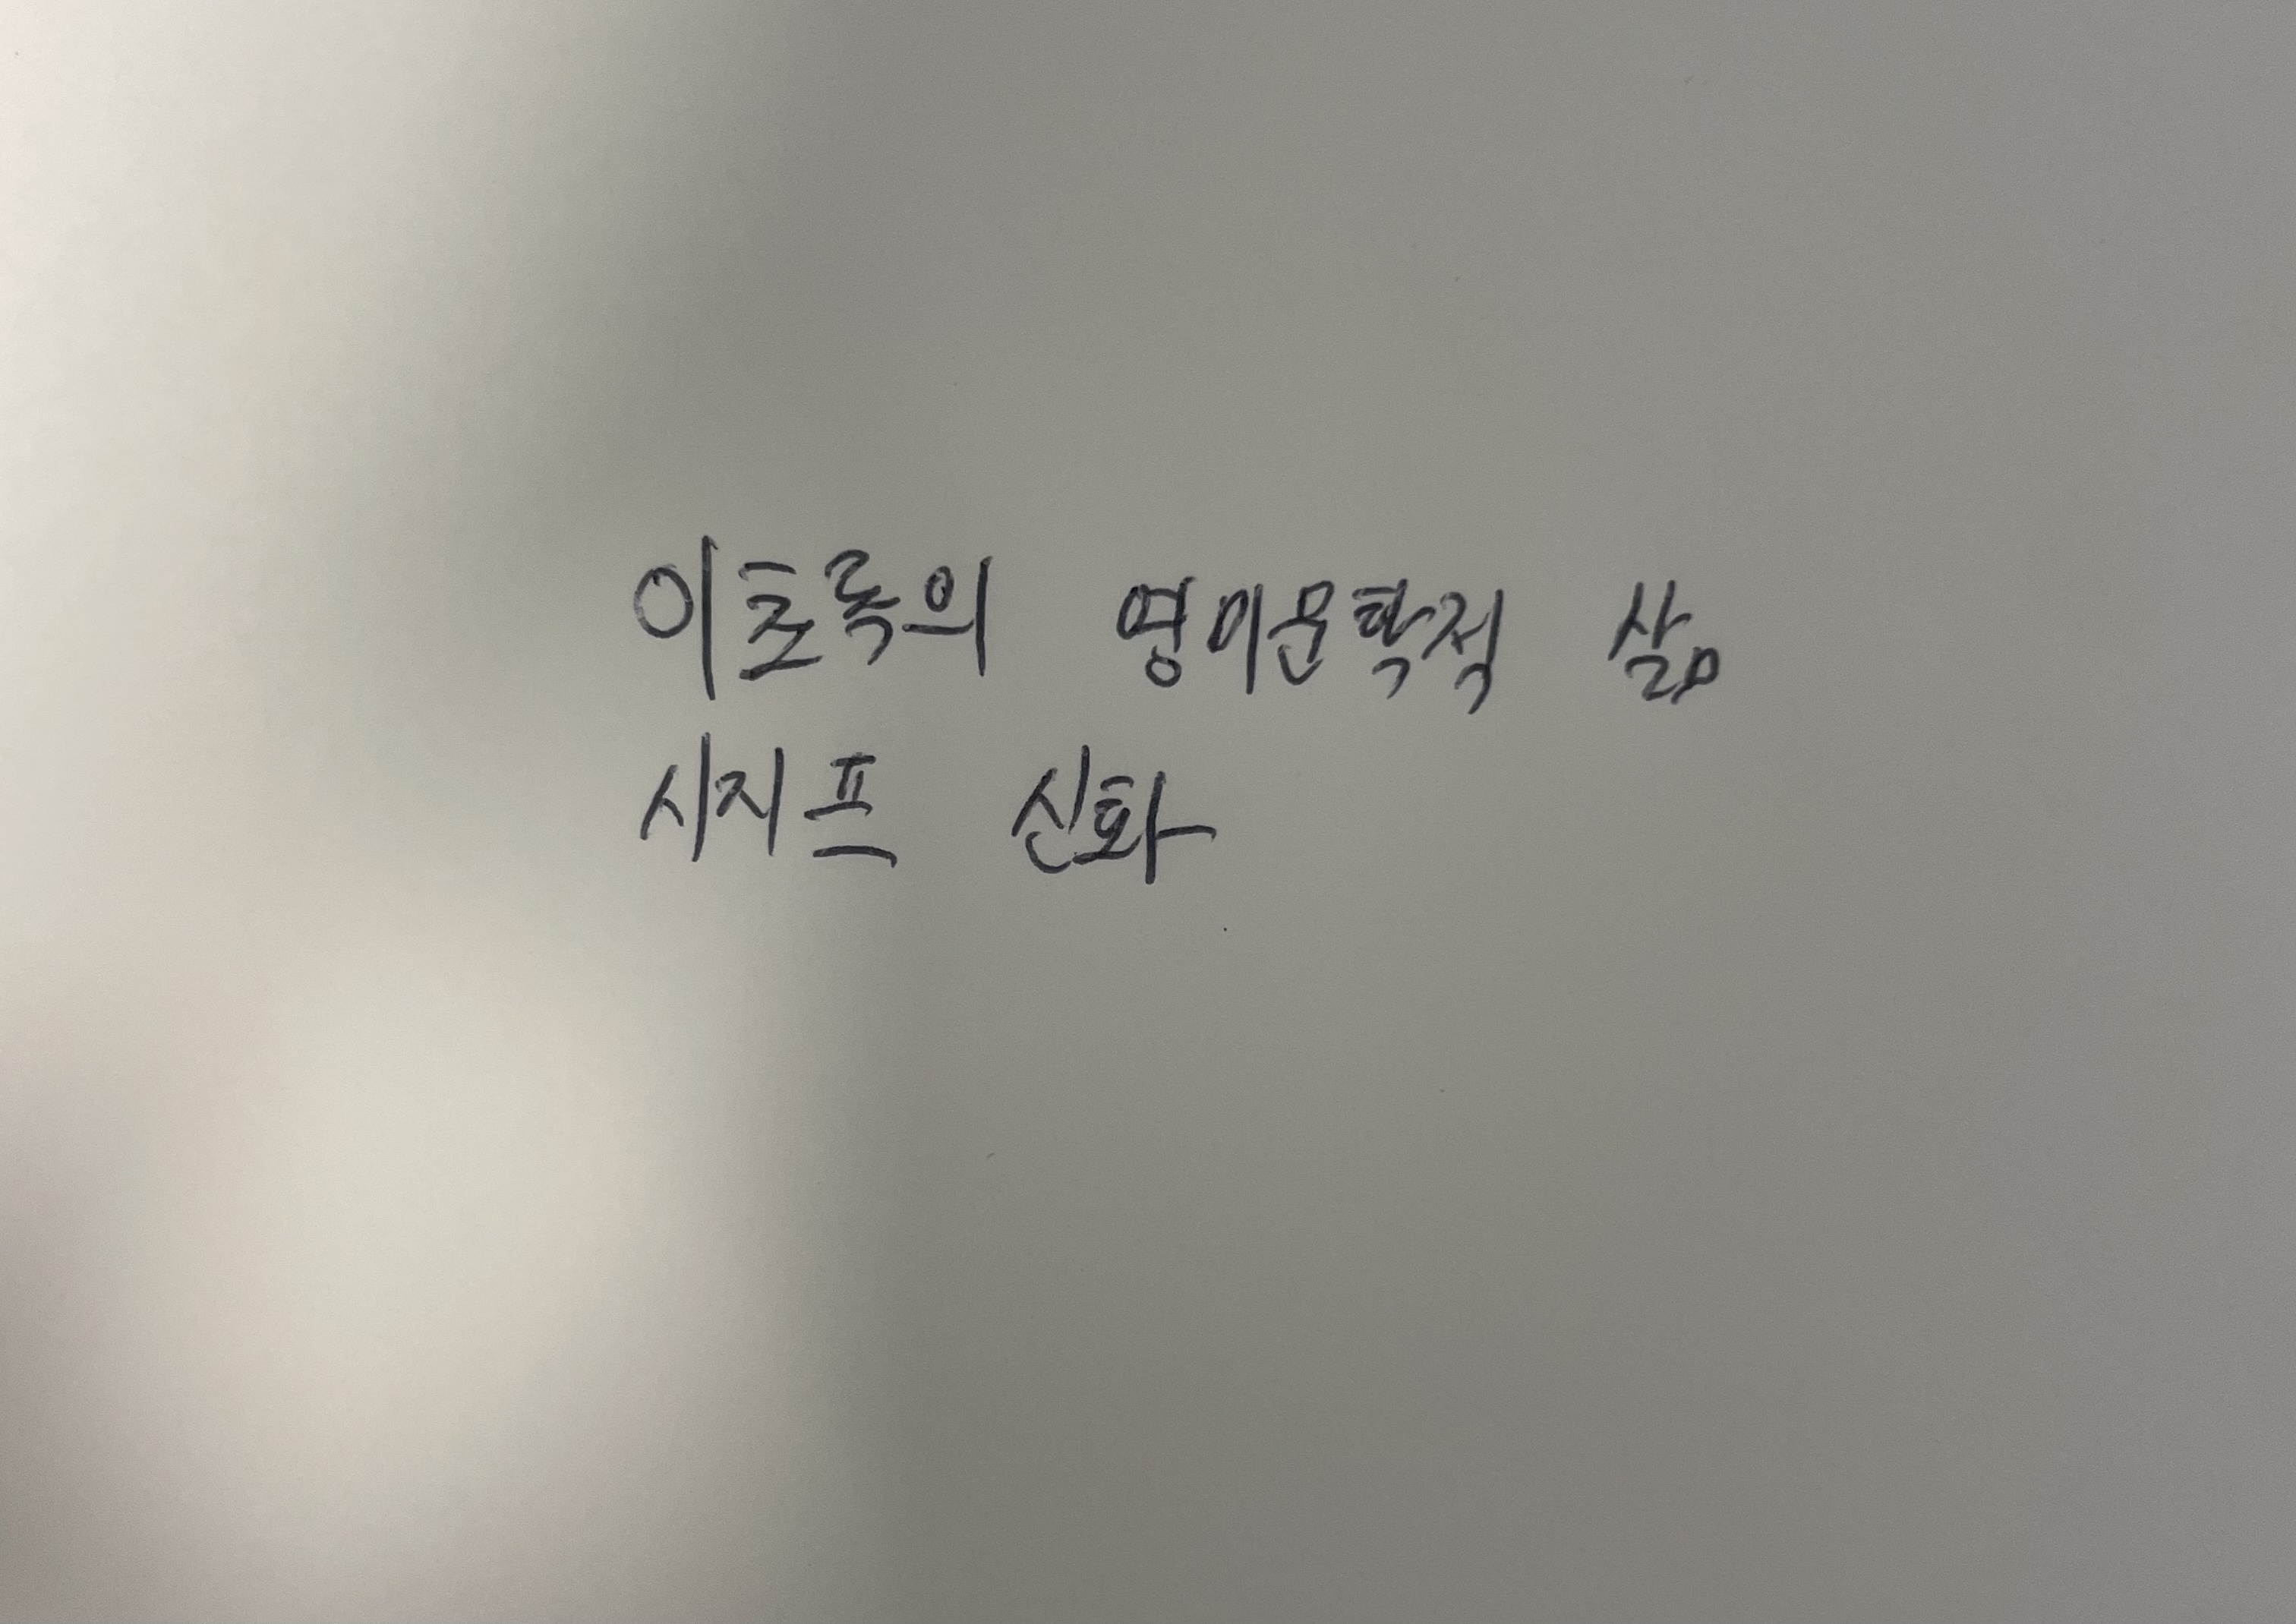 이초록의 영미문학적 삶
시지프 신화